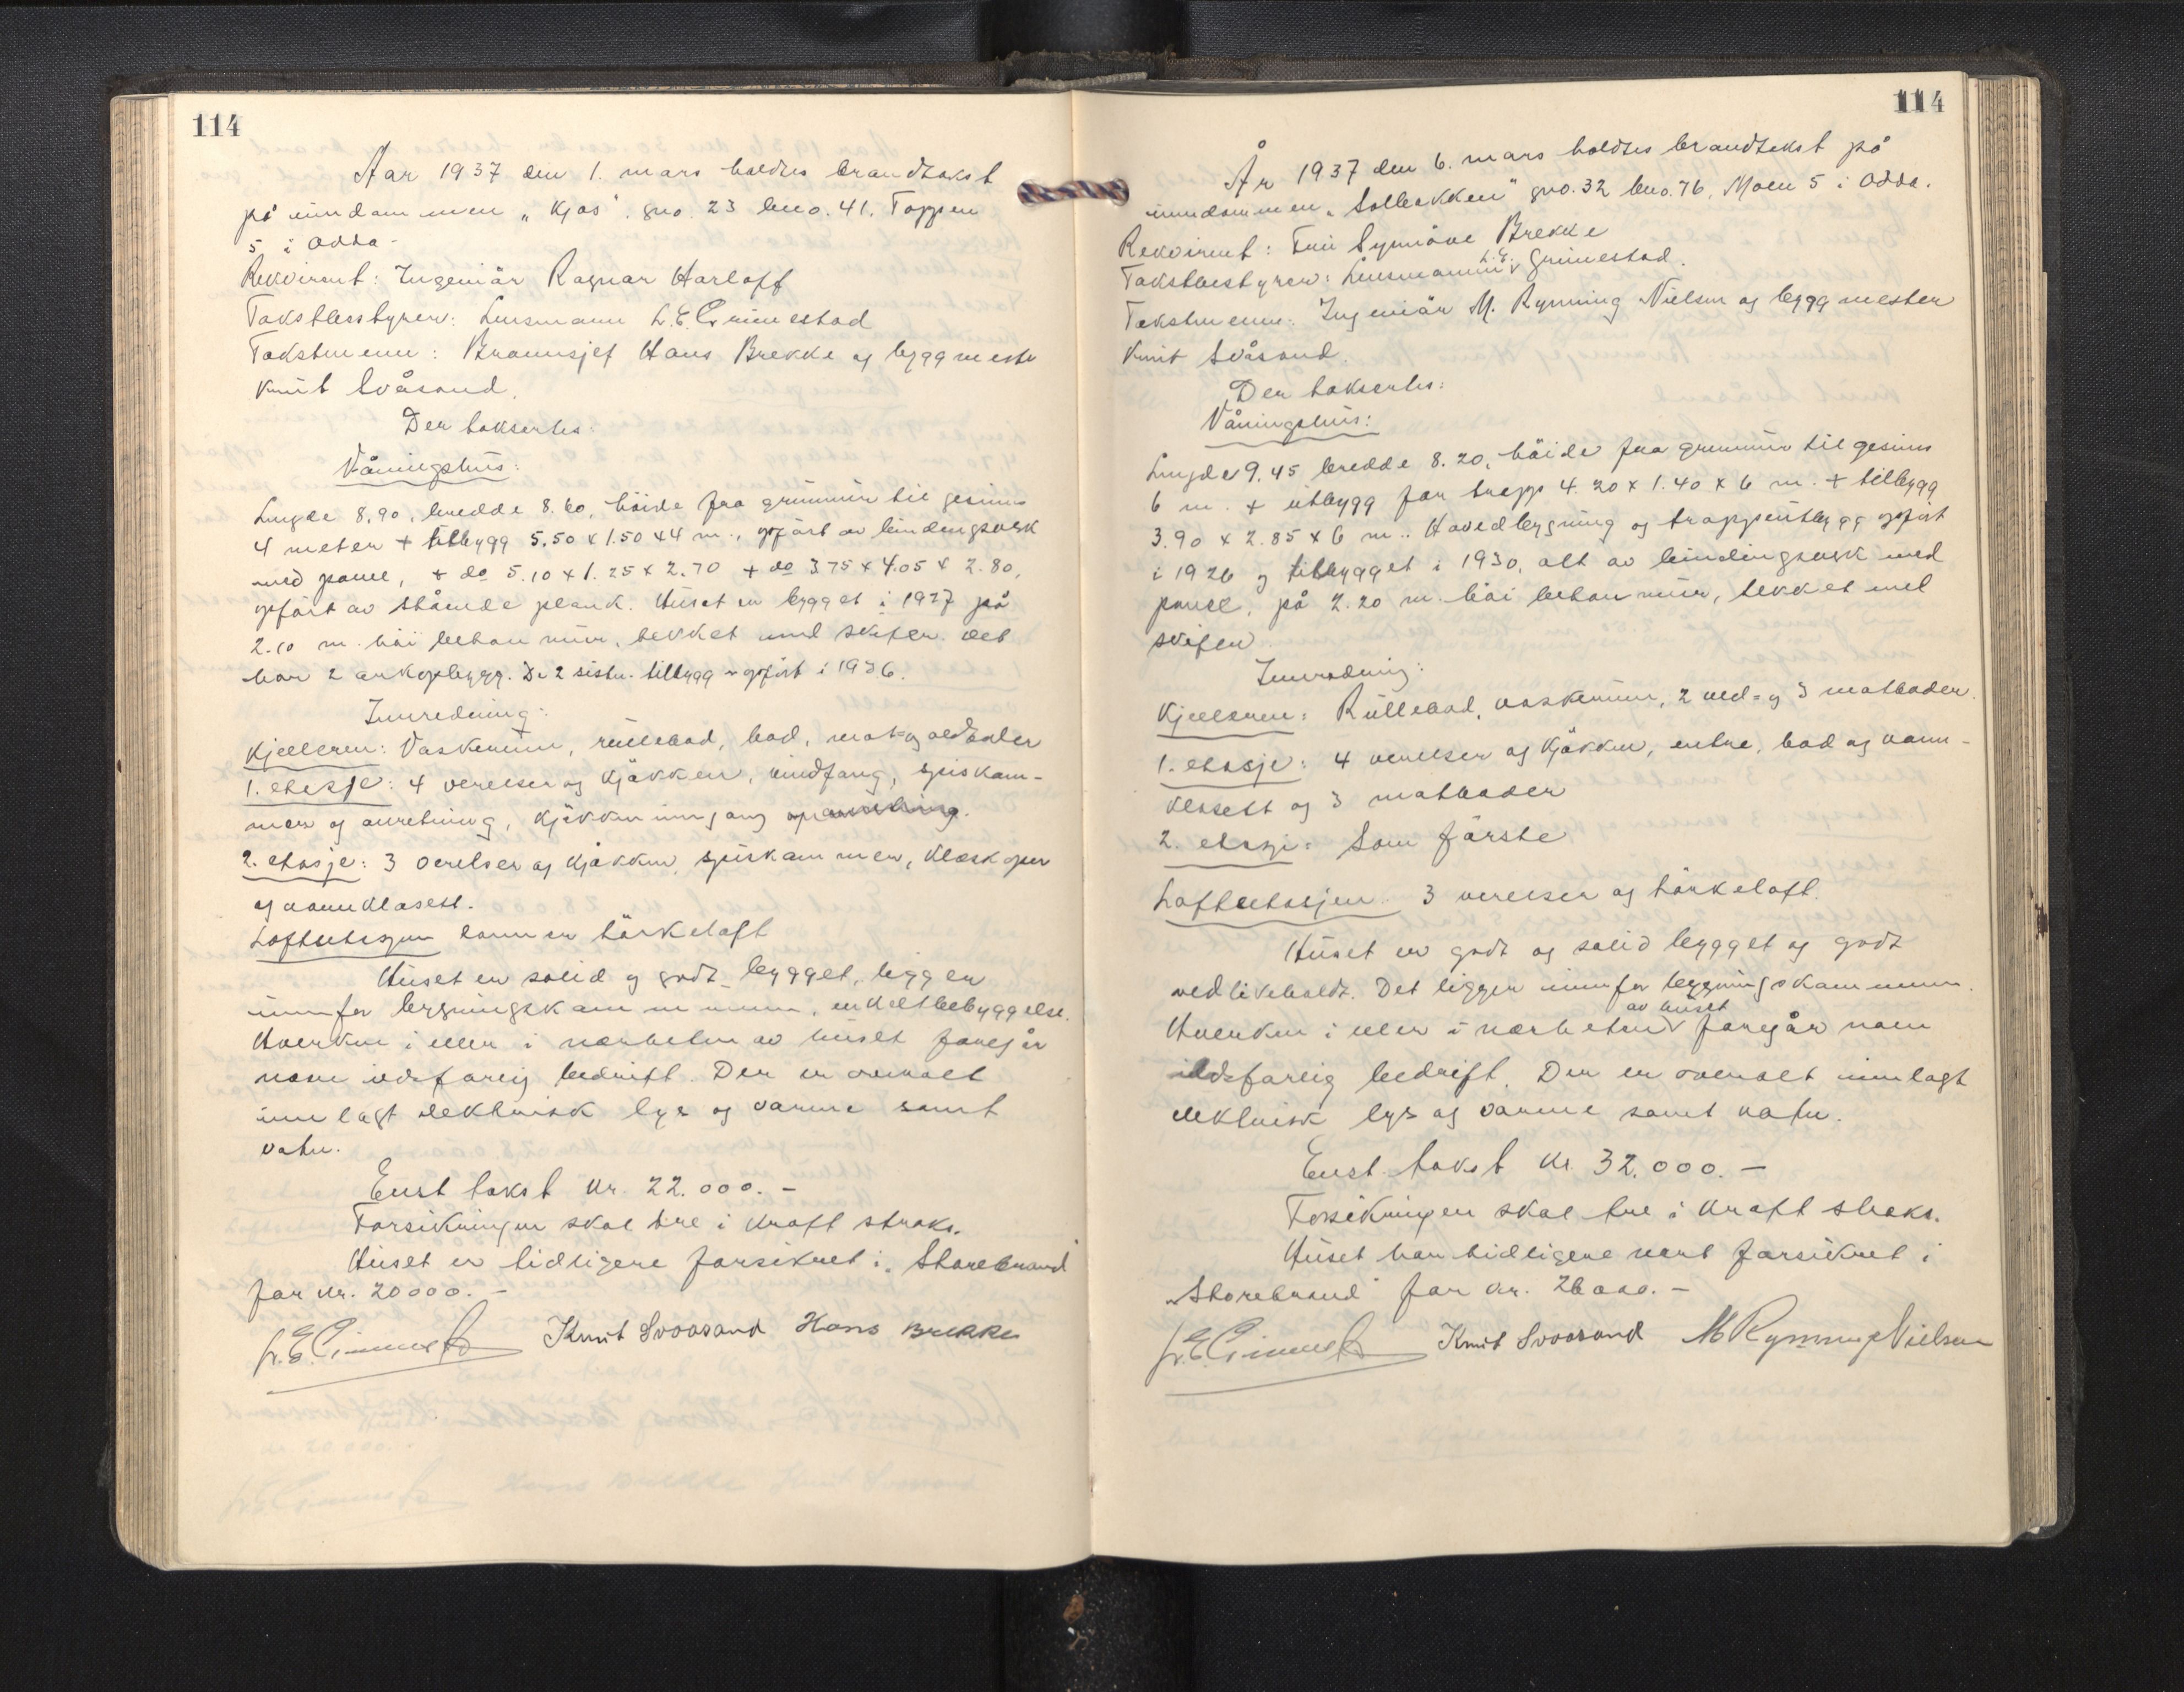 114
Aar 1937 den 1. mars holdtes brandtakst
på eiendommen „Kjos". gno. 23 bno. 41. Toppen
5 i Odda-
Rekvirent: Ingeniør Ragnar Harloff
Takstbestyrer: Lensmann L.E. Grimestad
Takstmenn: Brannsjef Hans Brekke og byggmester
Knut Svåsand.
Der taksertes:
Våningshus:
Lengde 8.90, bredde 8.60, höide fra grunnmur til gesims
4 meter + tilbygg 5.50 x 1.50 x 4 m., opfört av bindingsverk
med panel, + do 5.10 x 1.25 x 2.70 + do 3.75 x 4.05 x 2.80,
opfört av stående plank. Huset er bygget i 1927 på
2.10 m. höi betonmur, tekket med skifer. Det
har 2 arkopbygg. De 2 siste tilbygg er opfört i 1936.
Innredning:
Kjelleren: Vaskerum, rullebod, bod, mat- og vedboder
1. etasje: 4 verelser og kjökken, vindfang, spiskam-
mer og anretning, kjökkeninngang
2. etasje: 3 verelser og kjökken, spiskammer, kleskoper
og vannklosett.
Loftsetasjen rommer törkeloft
Huset er solid og godt bygget, ligger
innfor bygningskommunen, enkeltbebyggelse.
Hverken i eller i nærheten av huset foregår
noen ildsfarlig bedrift. Der er overalt
innlagt elektrisk lys og varme samt
vatn.
Enst. takst kr. 22.000.-
Forsikringen skal tre i kraft straks.
Huset er tidligere forsikret i „Storebrand"
for kr. 20000.-
L.E. Grimestad Knut Svoosand Hans Brekke
114
År 1937 den 6. mars holdtes brandtakst på
eiendommen „Solbakken" gno. 32 bno. 76, Moen 5 i Odda.
Rekvirent: Fru Synnöve Brekke
Takstbestyrer: Lensmann L.E. Grimestad.
Takstmenn: Ingeniör M. Rynning Nielsen og byggmester
Knut Svåsand.
Der taksertes:
Våningshus:
Lengde 9.45 bredde 8.20, höide fra grunnmur til gesims
6 m. + utbygg for trapp 4.20 x 1.40 x 6 m. + tilbygg
3.90 x 2.85 x 6 m.. Hovedbygning og trappeutbygg opfört
i 1926 og tilbygget i 1930, alt av bindingsverk med
panel, på 2.20 m. höi betonmur, tekket med
skifer
Innredning:
Kjelleren: Rullebod, vaskerum, 2 ved- og 3 matboder.
1. etasje: 4 verelser og kjökken, entre, bad og vann-
klosett og 3 matboder
2. etasje: Som förste
Loftsetasjen: 3 verelser og törkeloft.
Huset er godt og solid bygget og godt
vedlikeholdt. Det ligger innfor bygningskommunen.
Hverken i eller i nærheten av huset foregår noen
ildsfarlig bedrift. Der er overalt innlagt
elektrisk lys og varme samt vatn.
Enst. takst kr. 32.000.-
Forsikringen skal tre i kraft straks.
Huset har tidligere vært forsikret i
„Storebrand" for kr. 26000.-
L.E. Grimestad Knut Svoosand M Rynning Nielsen